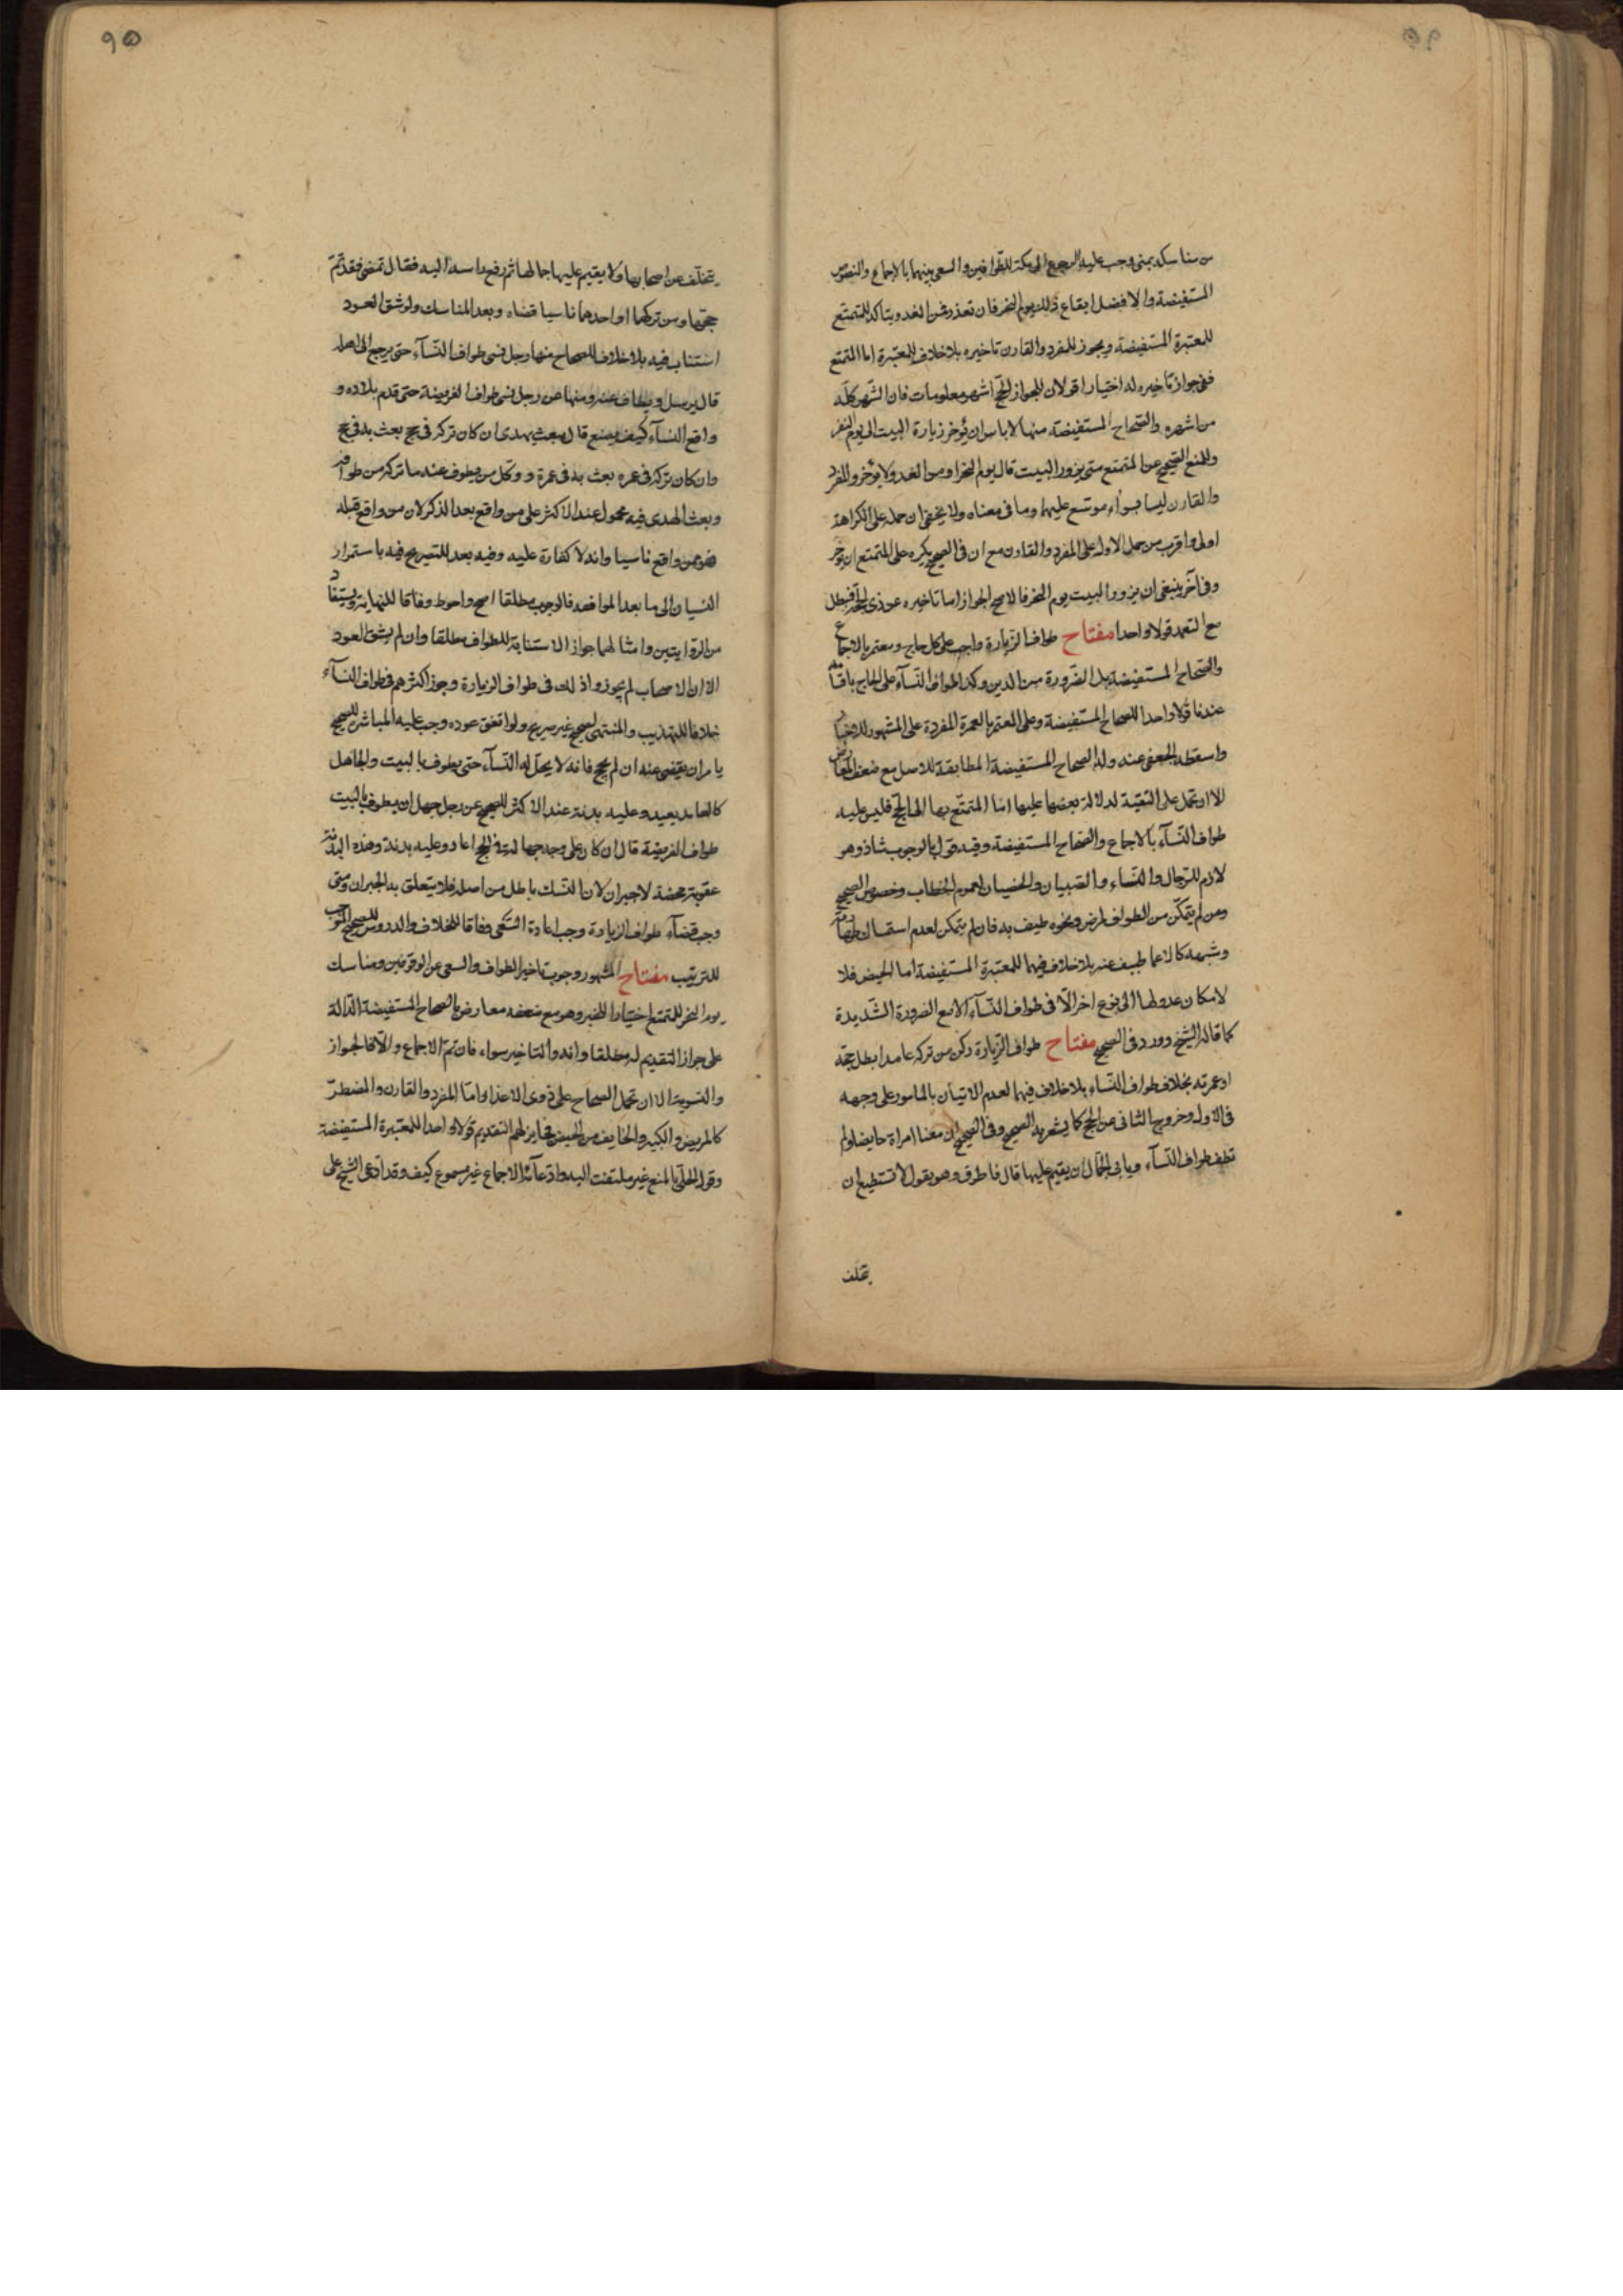 من مناسكه بمنى وجب عليه الرجوع الى مكة للطوافين والسعى بينهما بالاجماع والنصوص
المستفيضة والافضل ايقاع ذلك يوم النحر فان تعذر فمن الغد ويتاكد للمتمتع
للمعتبرة المستفيضة ويجوز للمفرد والقارن تاخيره بلا خلاف للمعتبرة اما المتمتع
ففى جواز تاخيره له اختيارا قولان للجواز الحج اشهر معلومات فان الشهر كله
من اشهره والصحاح المستفيضة منها لاباس ان يؤخر زيارة البيت الى يوم النفر
وللمنع الصحيح عن المتمتع متى يزور البيت قال يوم النحر او من الغد ولا يؤخر والمفرد
والقارن ليسا بسواء موسّع عليهما وما فى معناه ولا يخفى ان حمله على الكراهة
اولى واقرب من حمل الاوله على المفرد والقارن مع ان فى الصحيح يكره على المتمتع ان يؤخر
وفى آخر ينبغى ان يزور البيت يوم النحر فالاصح الجواز اما تاخيره عن ذى الحجة فيبطل
مع التعمد قولا واحدا مفتاح طواف الزيارة واجب على كل حاج ومعتمر بالاجماع
والصحاح المستفيضة بل الضرورة من الدين وكذا طواف النسآء على الحاج باقسامه
عندنا قولا واحدا للصحاح المستفيضة وعلى المعتمر بالعمرة المفردة على المشهور للاخبار
واسقطه الجعفى عنه وله الصحاح المستفيضة المطابقة للاصل مع ضعف المعارض
الا ان تحمل على التقية لدلالة بعضها عليها اما المتمتع بها الى الحج فليس عليه
طواف النسآء بالاجماع والصحاح المستفيضة وفيه قول بالوجوب شاذ وهو
لازم للرجال والنساء والصبيان والخصيان لعموم الخطاب وخصوص الصحيح
ومن لم يتمكن من الطواف لمرض ونحوه طيف به فان لم يتمكن لعدم استمساك طهارته
وشبهه كالاغما طيف عنه بلا خلاف فيهما للمعتبرة المستفيضة اما الحيض فلا
لامكان عدولها الى نوع اخر الّا فى طواف النسآء الا مع الضرورة الشديدة
كما قاله الشيخ وورد فى الصحيح مفتاح طواف الزيارة ركن من تركه عامدا بطل حجه
او عمرته بخلاف طواف النساء بلا خلاف فيهما لعدم الاتيان بالمامور على وجهه
فى الاول وخروج الثانى عن الحج كما يشعر به الصحيح وفى الصحيح ان معنا امراة حايضا ولم
تطف طواف النسآء ويابى الجمّال ان يقيم عليها قال فاطرق وهو يقول لا تستطيع ان
تخلف
تتخلف عن اصحابها ولا يقيم عليها جمالها ثم رفع راسه اليه فقال تمضى فقد تم
حجها ومن تركهما او احدهما ناسيا قضاه وبعد المناسك ولو شق العود
استناب فيه بلا خلاف للصحاح منها رجل نسى طواف النسآء حتى يرجع الى اهله
قال يرسل ويطاف عنه ومنها عن رجل نسى طواف الفريضة حتى قدم بلاده و
واقع النسآء كيف يصنع قال يبعث بهدى ان كان تركه فى حج بعث به فى حج
وان كان تركه فى عمره بعث به فى عمرة ووكل من يطوف عنه ما تركه من طوافه
وبعث الهدى فيه محمول عند الاكثر على من واقع بعد الذكر لان من واقع قبله
فهو ممن واقع ناسيا وانه لا كفارة عليه وفيه بعد للتصريح فيه باستمرار
النسيان الى ما بعد المواقعه فالوجوب مطلقا اصح واحوط وفاقا للنهاية ويستفاد
من الروايتين وامثالهما جواز الاستنابة للطواف مطلقا وان لم يشق العود
الا ان الاصحاب لم يجوزوا ذلك فى طواف الزيارة وجوز اكثرهم فى طواف النسآء
خلافا للتهذيب والمنتهى لصحيح غير صريح ولو اتفق عوده وجب عليه المباشرة للصحيح
يامر ان يقضى عنه ان لم يحج فانه لا يحل له النسآء حتى يطوف بالبيت والجاهل
كالعامد يعيد وعليه بدنة عند الاكثر للصحيح عن رجل جهل ان يطوف بالبيت
طواف الفريضة قال ان كان على وجه جهالة فى الحج اعاد وعليه بدنة وهذه البدنة
عقوبة محضة لا جبران لان النسك باطل من اصله فلا يتعلق به الجبران ومتى
وجب قضآء طواف الزيارة وجب اعادة السّعى وفاقا للخلاف والدروس للصحيح الموجب
للترتيب مفتاح المشهور وجوب تاخير الطواف والسعى عن الوقوفين ومناسك
يوم النحر للمتمتع اختيارا للخبر وهو مع ضعفه معارض بالصحاح المستفيضة الدالة
على جواز التقديم له مطلقا وانه والتاخير سواء فان تم الاجماع والّا فالجواز
والتسوية الا ان تحمل الصحاح على ذوى الاعذار اما المفرد والقارن والمضطر
كالمريض والكبير والخايف من الحيض فجايز لهم التقديم قولا واحدا للمعتبرة المستفيضة
وقول الحلّى بالمنع غير ملتفت اليه وادّعآئه الاجماع غير مسموع كيف وقد ادّعى الشيخ على